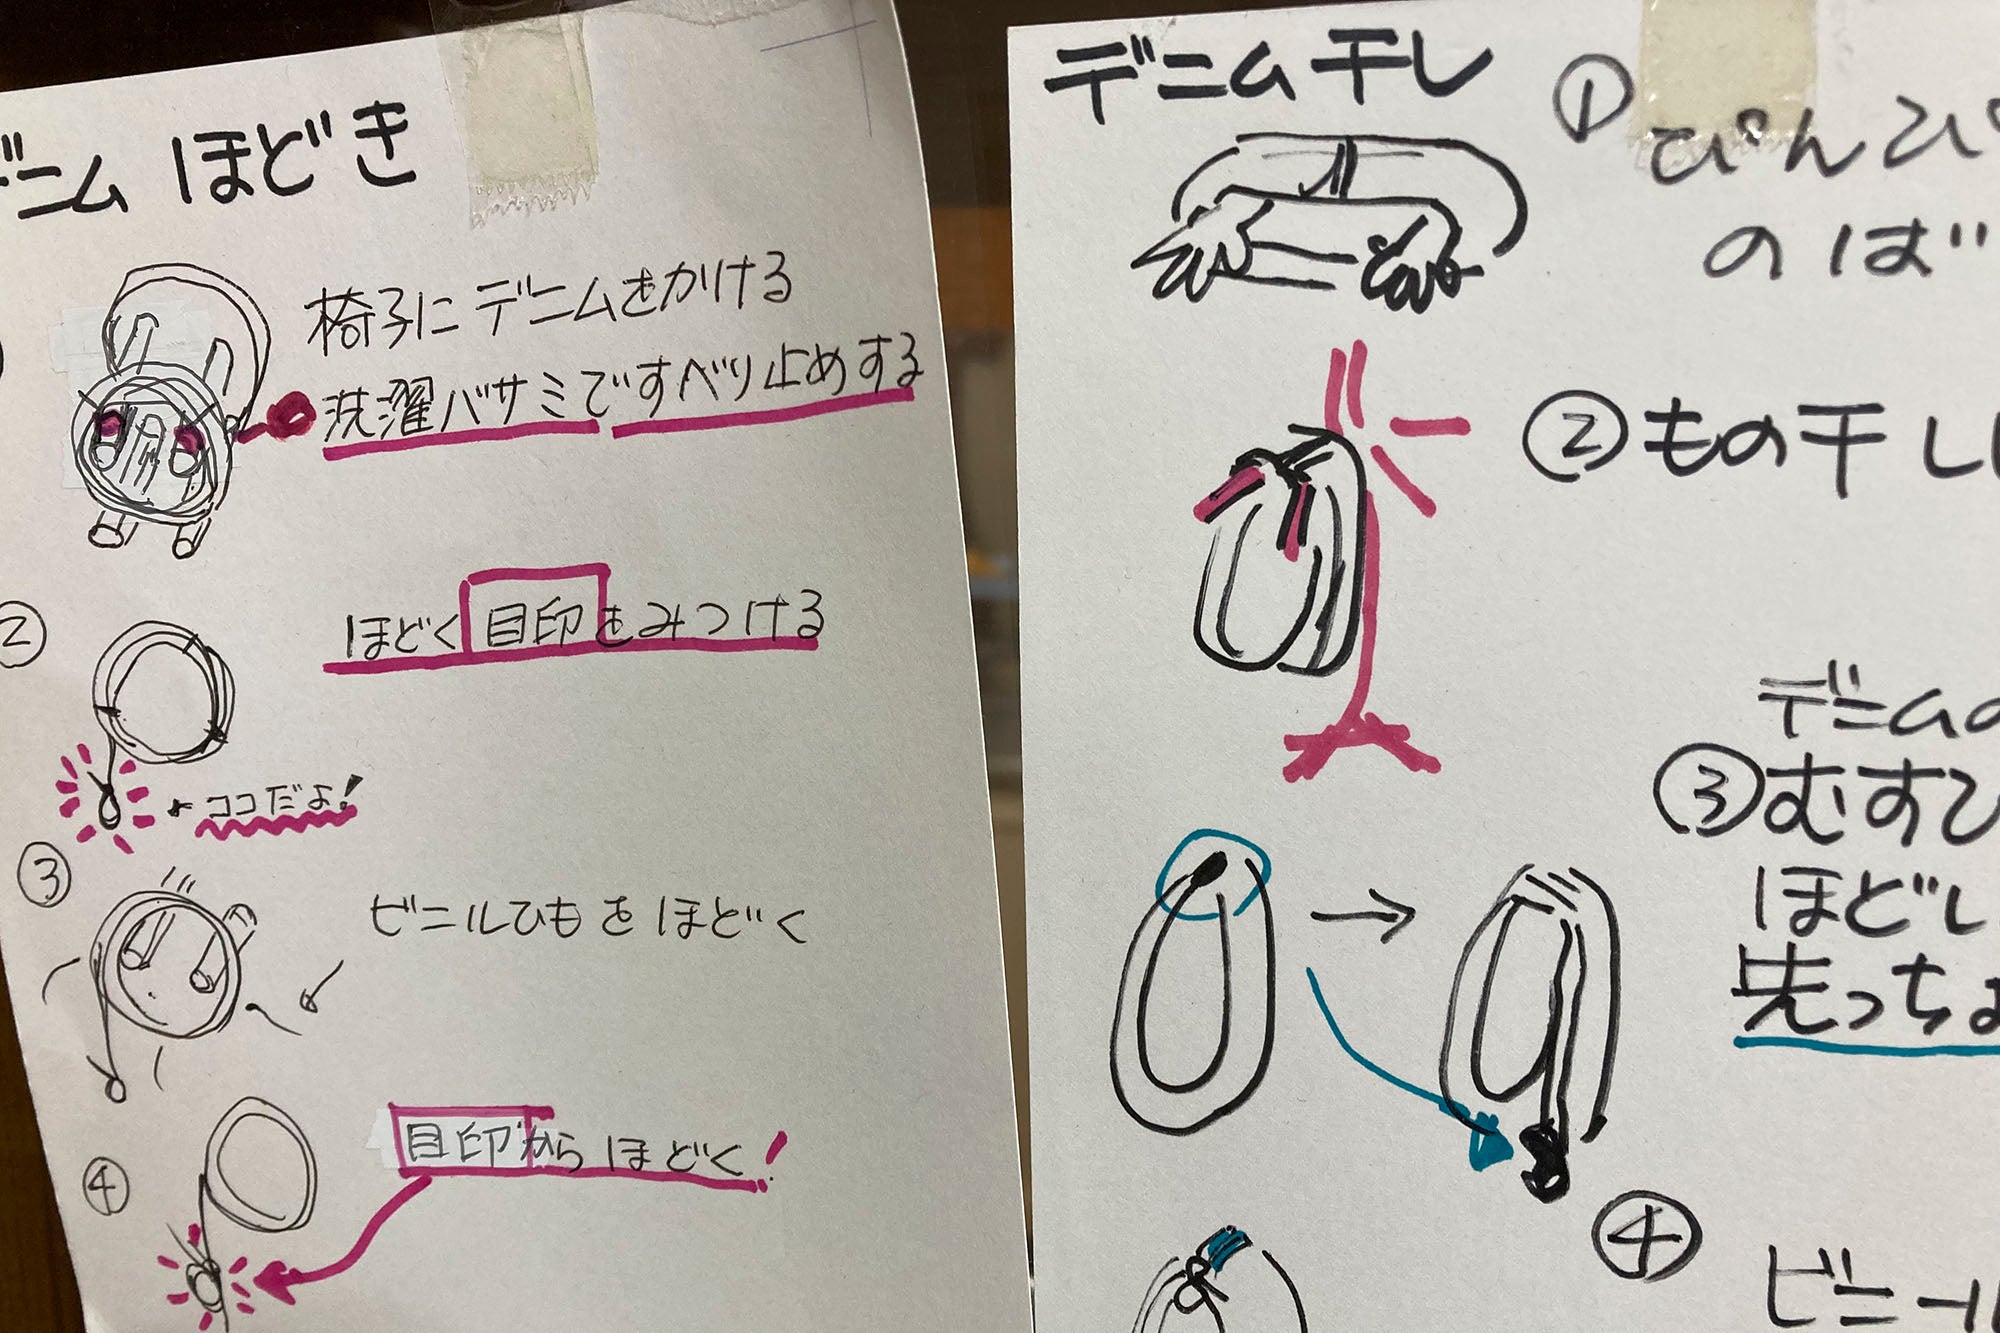 デニム ほどき
椅子にデニムをかける
洗濯バサミですべり止めする
②
ほどく目印をみつける
ココだよ!
③
ビニルひもをほどく
④
目印からほどく!
デニム干し
①
ぴんぴ
のば
②もの干し
デニムの
③むすび
ほどい
先っちょ
④
ビニール